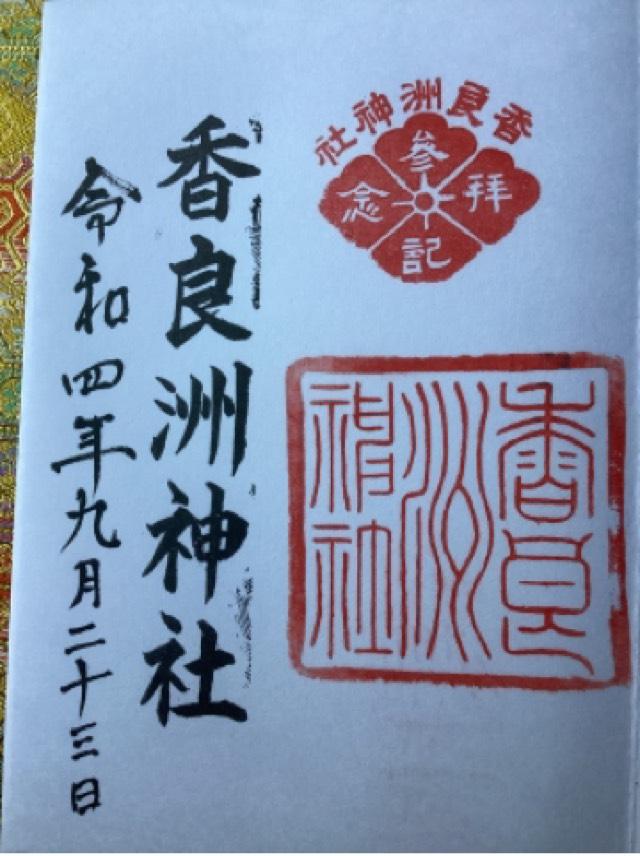 香良洲神社
参拝記念
香良洲神社
香良洲神社
令和四年九月二十三日